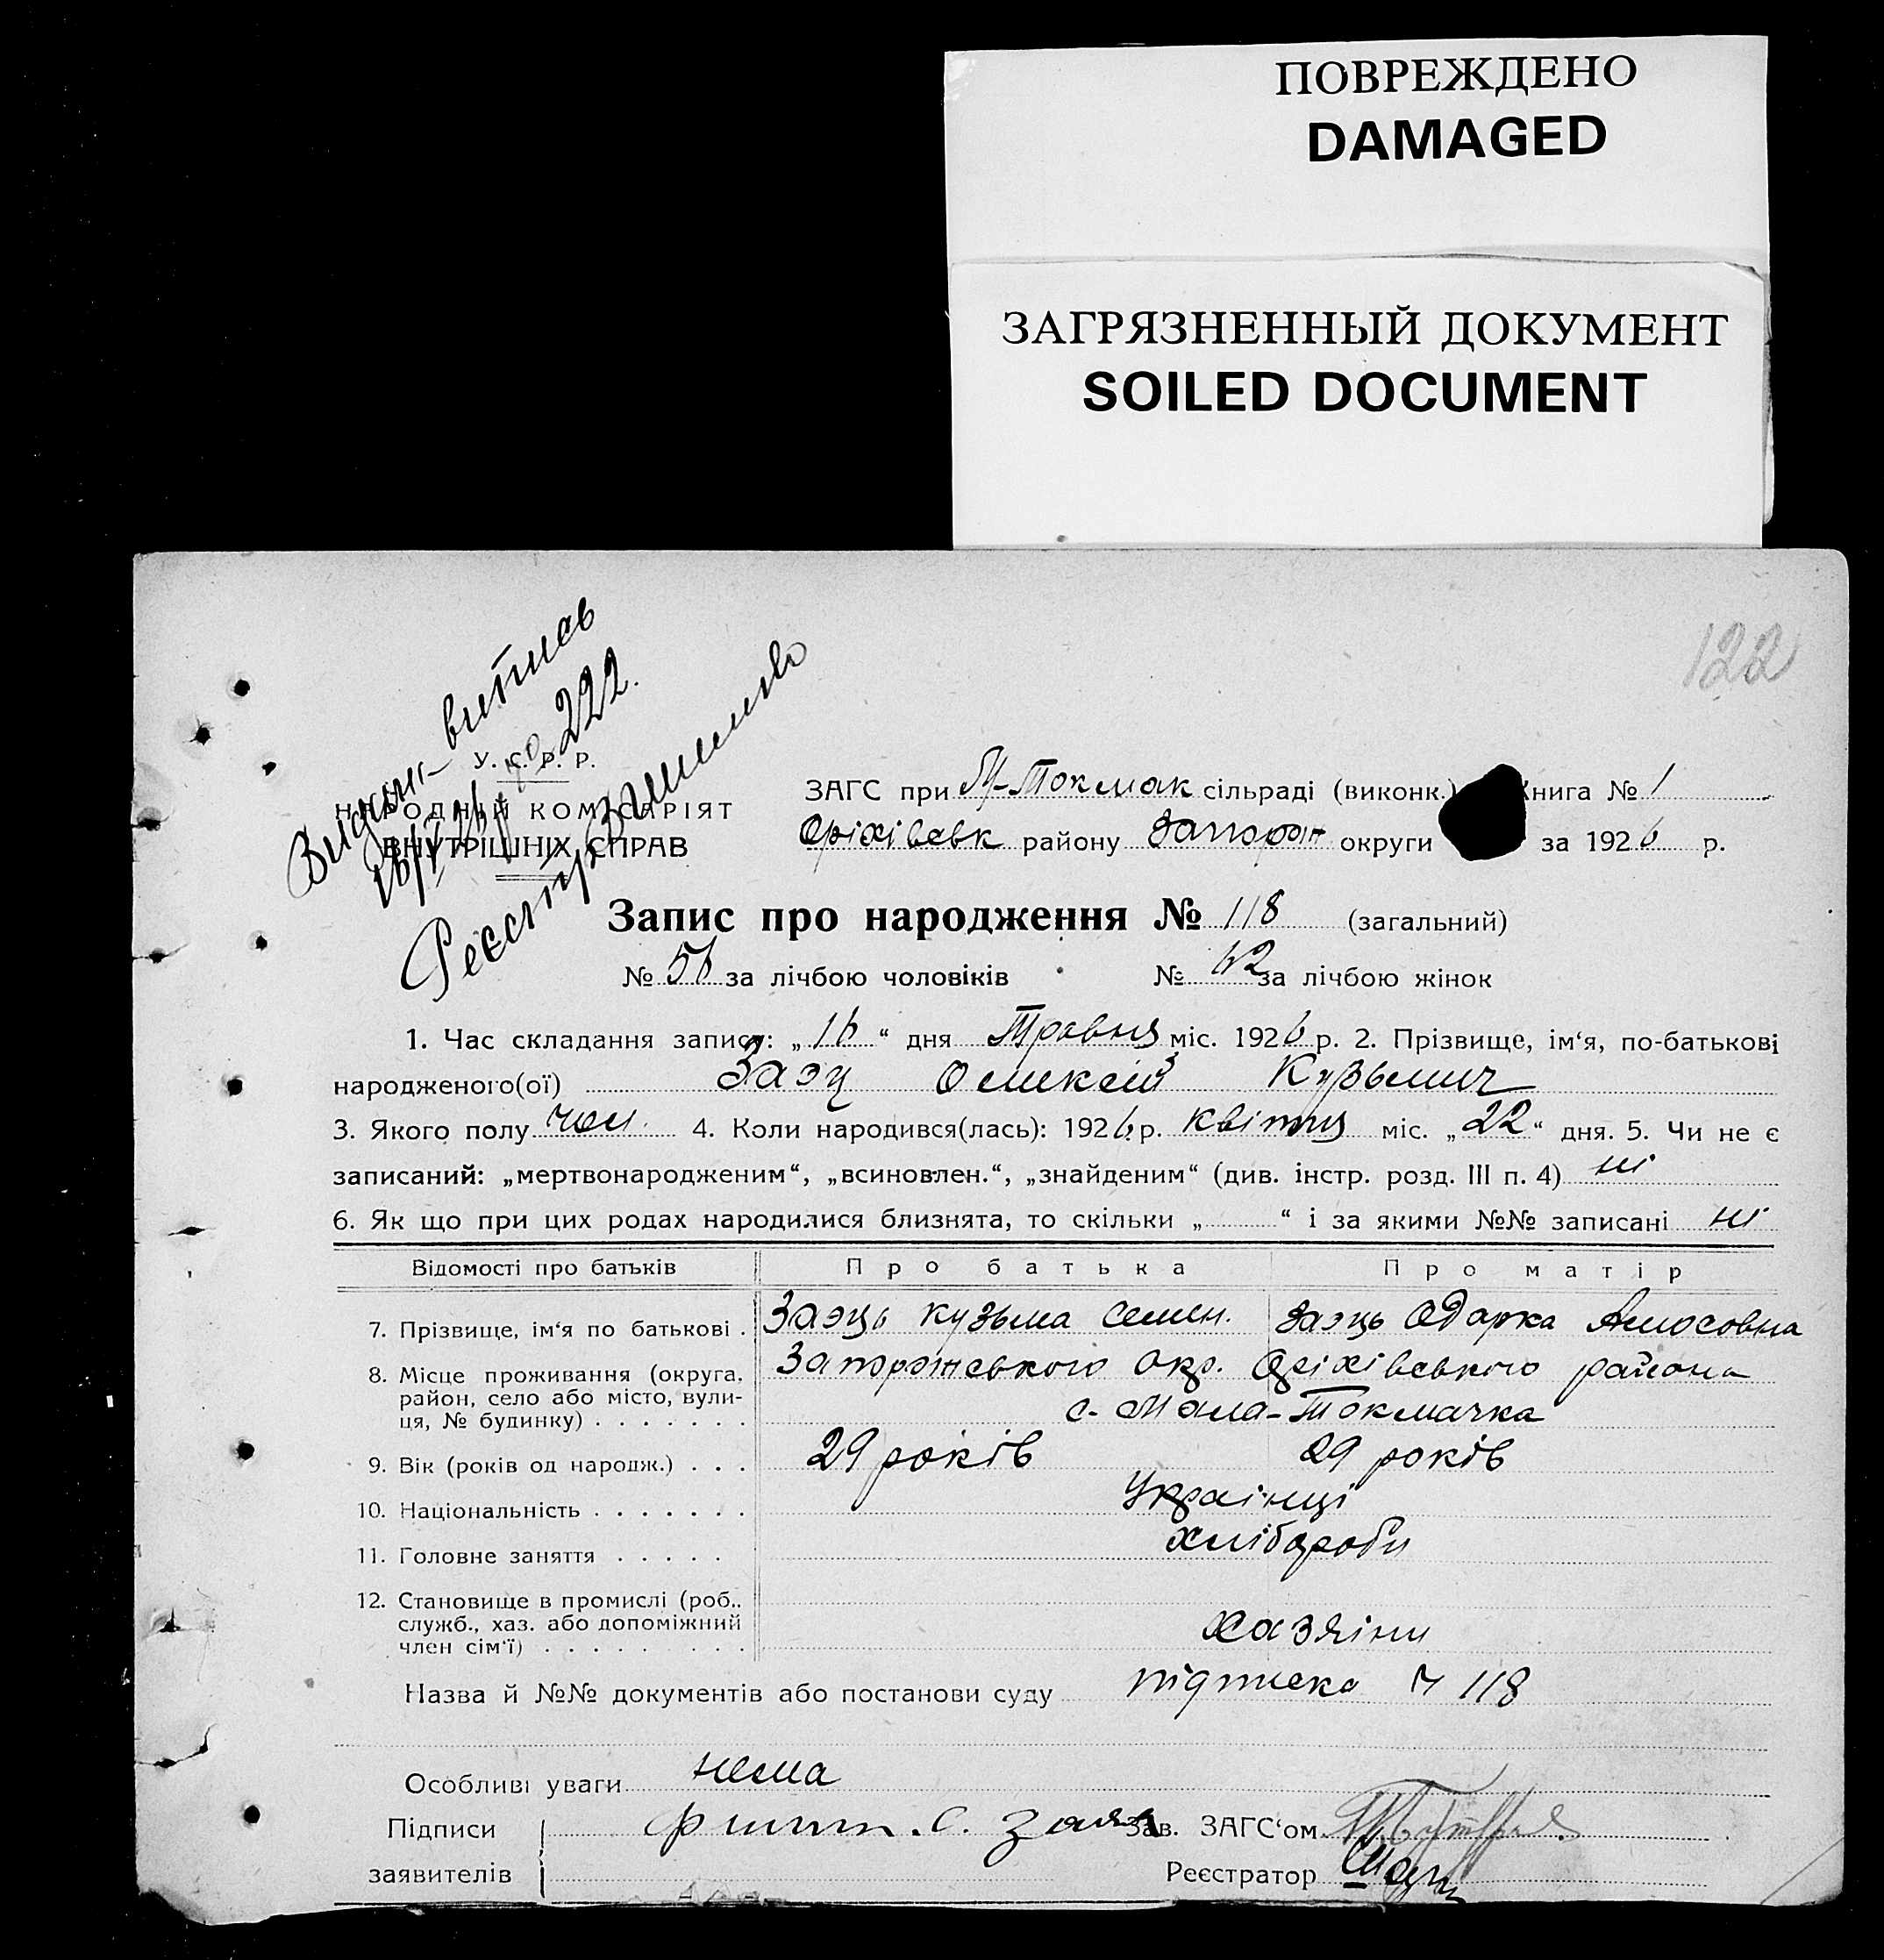 ПОВРЕЖДЕНО
DAMAGED
ЗАГРЯЗНЕННЫЙ ДОКУМЕНТ
SOILED DOCUMENT
122
витпись
222.
Реєстр
У. С. Р. Р.
НАРОДНІЙ КОМІСАРІЯТ
ВНУТРІШНІХ СПРАВ
ЗАГС при М-Токмак сільраді (виконк.) Книга № 1
Оріхівськ району Запорож округи за 1926 р.
Запис про народження № 118 (загальний)
№ 56 за лічбою чоловіків № 62 за лічбою жінок
1. Час складання запису: „16“ дня Травня міс. 1926 р. 2. Прізвище, ім‘я, по-батькові
народженого(ої) Заэц Олексій Кузьмич
3. Якого полу чол. 4. Коли народився(лась): 1926 р. квітня міс. „22“ дня. 5. Чи не є
записаний: „мертвонародженим“, „всиновлен.“, „знайденим“ (див. інстр. розд. III п. 4) ні
6. Як що при цих родах народилися близнята, то скільки „ “ і за якими №№ записані ні
Відомості про батьків Про батька Про матір
7. Прізвище, ім‘я по батькові . Заэць Кузьма Семен. Заэць Одарка Амосовна
8. Місце проживання (округа, район, село або місто, вули- ця, № будинку) . . . . . . . Запорожського окр. Оріхівського района
с. Мала-Токмачка
9. Вік (років од народж.) . . . 29 років 29 років
10. Національність . . . . . . . Українці
11. Головне заняття . . . . . хлібороби
12. Становище в промислі (роб., служб., хаз. або допоміжний член сім‘ї) . . . . . . . . хазяіни
Назва й №№ документів або постанови суду підписка № 118
Особливі уваги нема
Підписи С. Заяц Зав. ЗАГС‘ом
заявителів Реєстратор